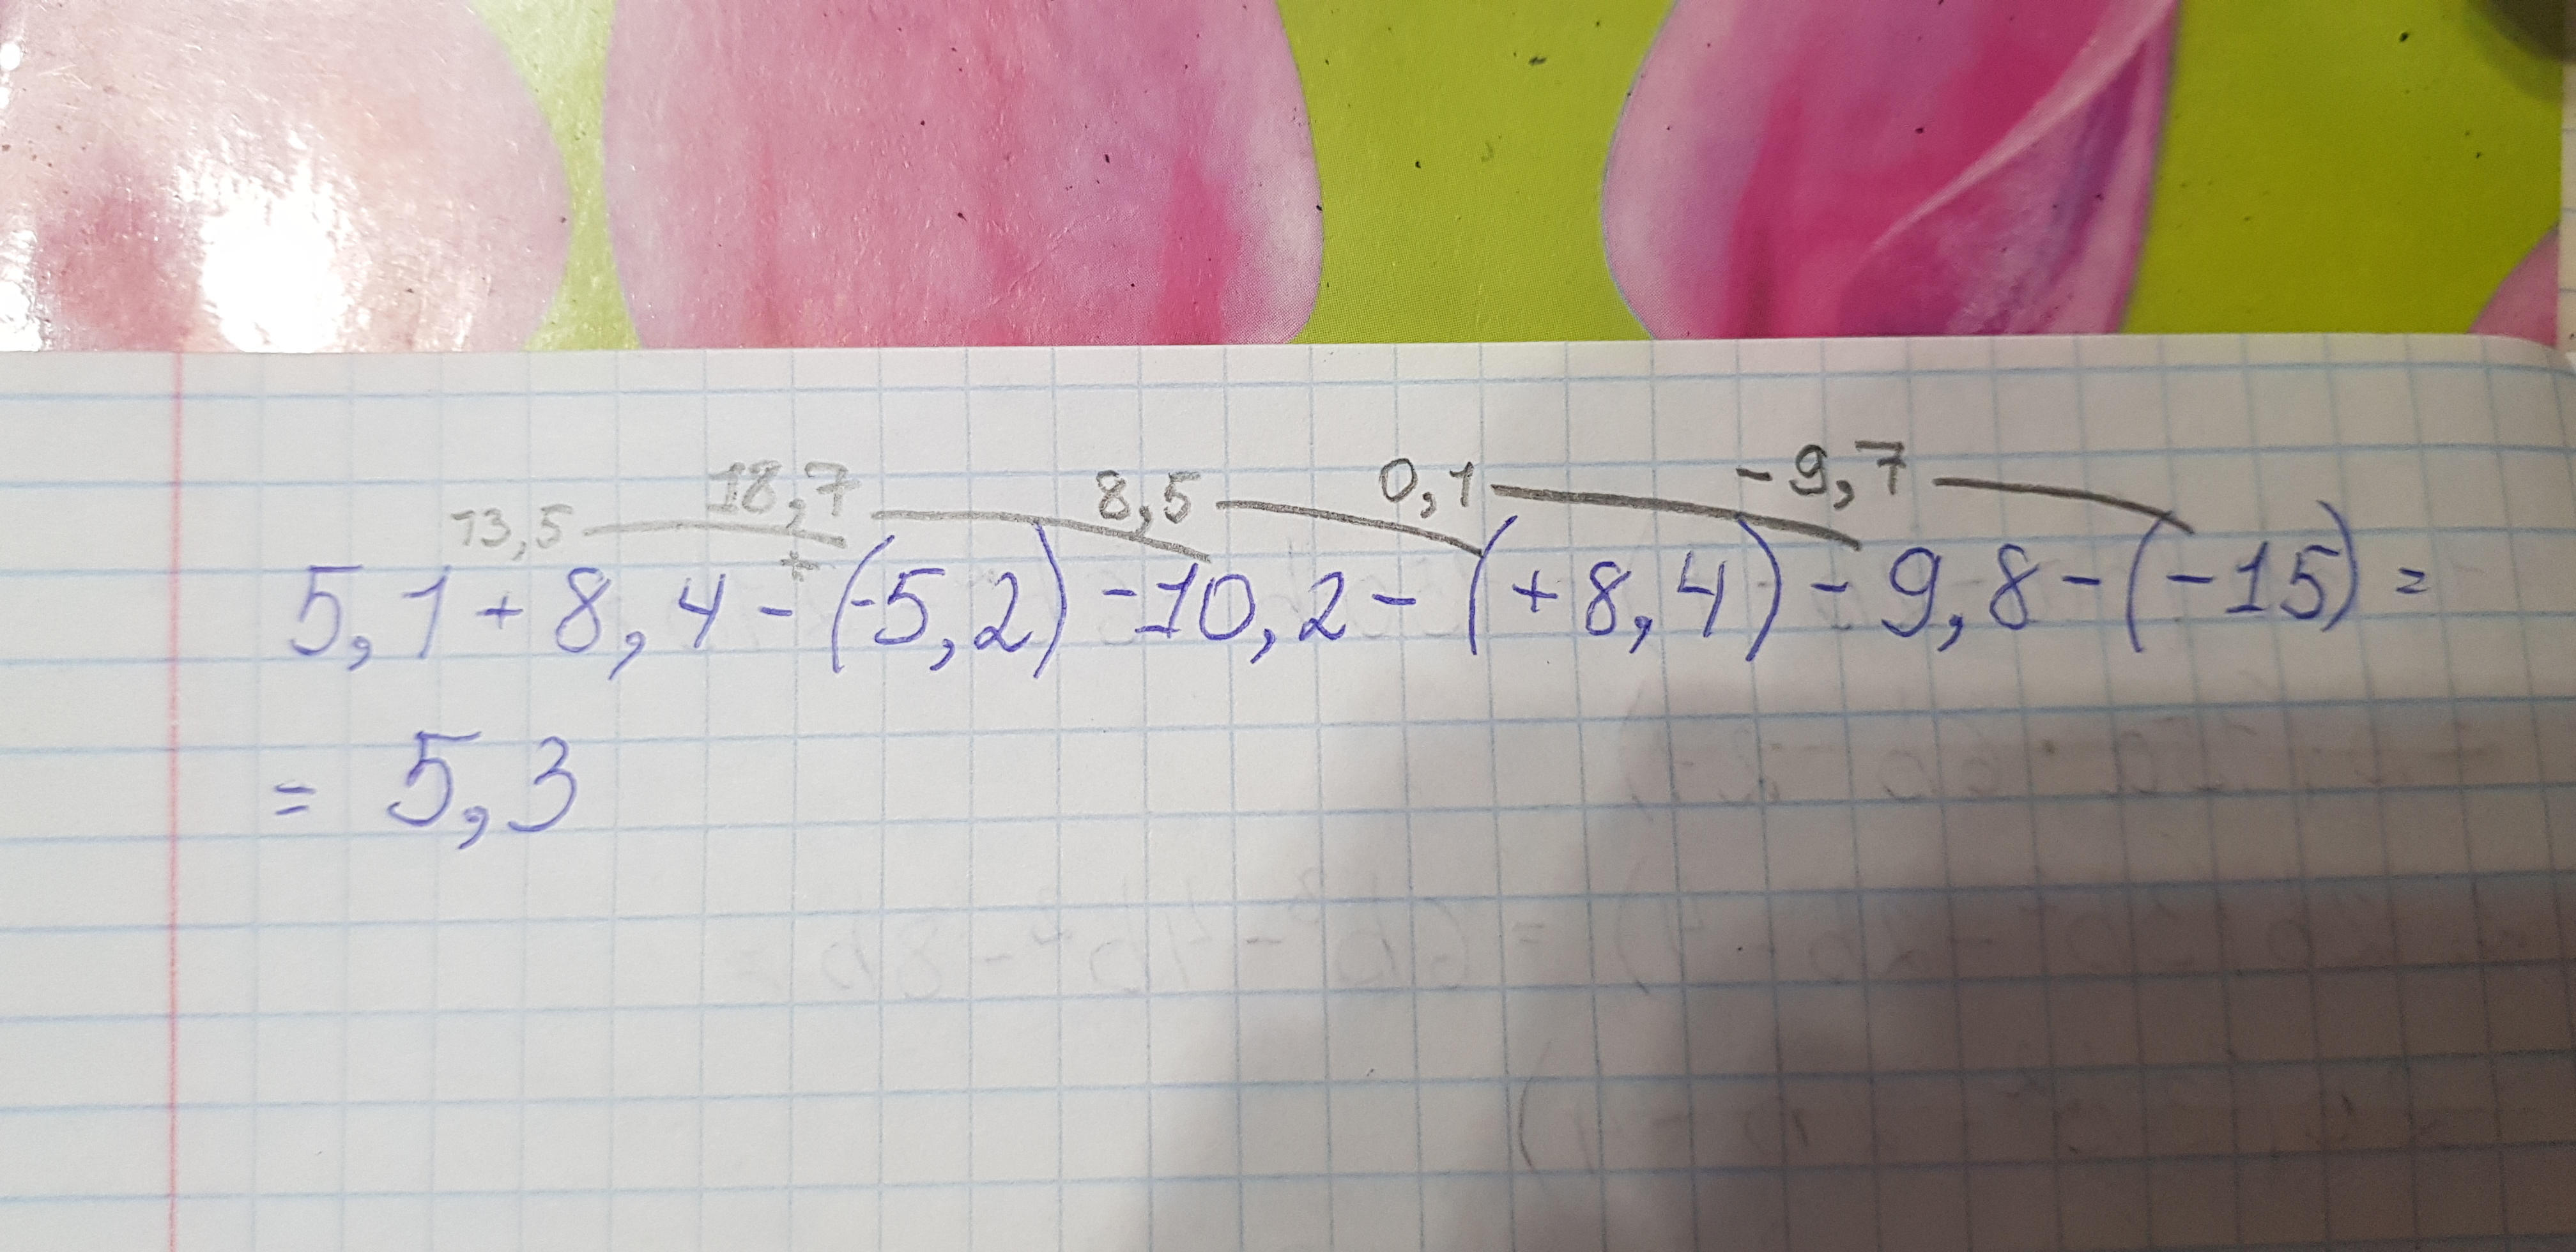 13,5 18,7 8,5 0,1 -9,7
+
5,1+8,4-(-5,2)-10,2-(+8,4)-9,8-(-15)=
= 5,3